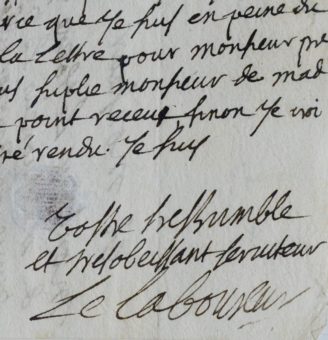 rce que Je suis en peine du
la Lettre pour monsieur pre
us suplie monsieur de mad
point receue sinon Je croi
ré rendu. Je suis
Vostre tres humble
et tres obeissant serviteur
Le Laboureur